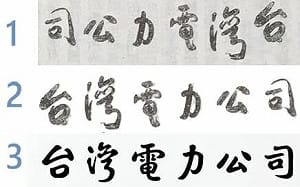 1 台湾電力公司
2 台湾電力公司
3 台湾電力公司